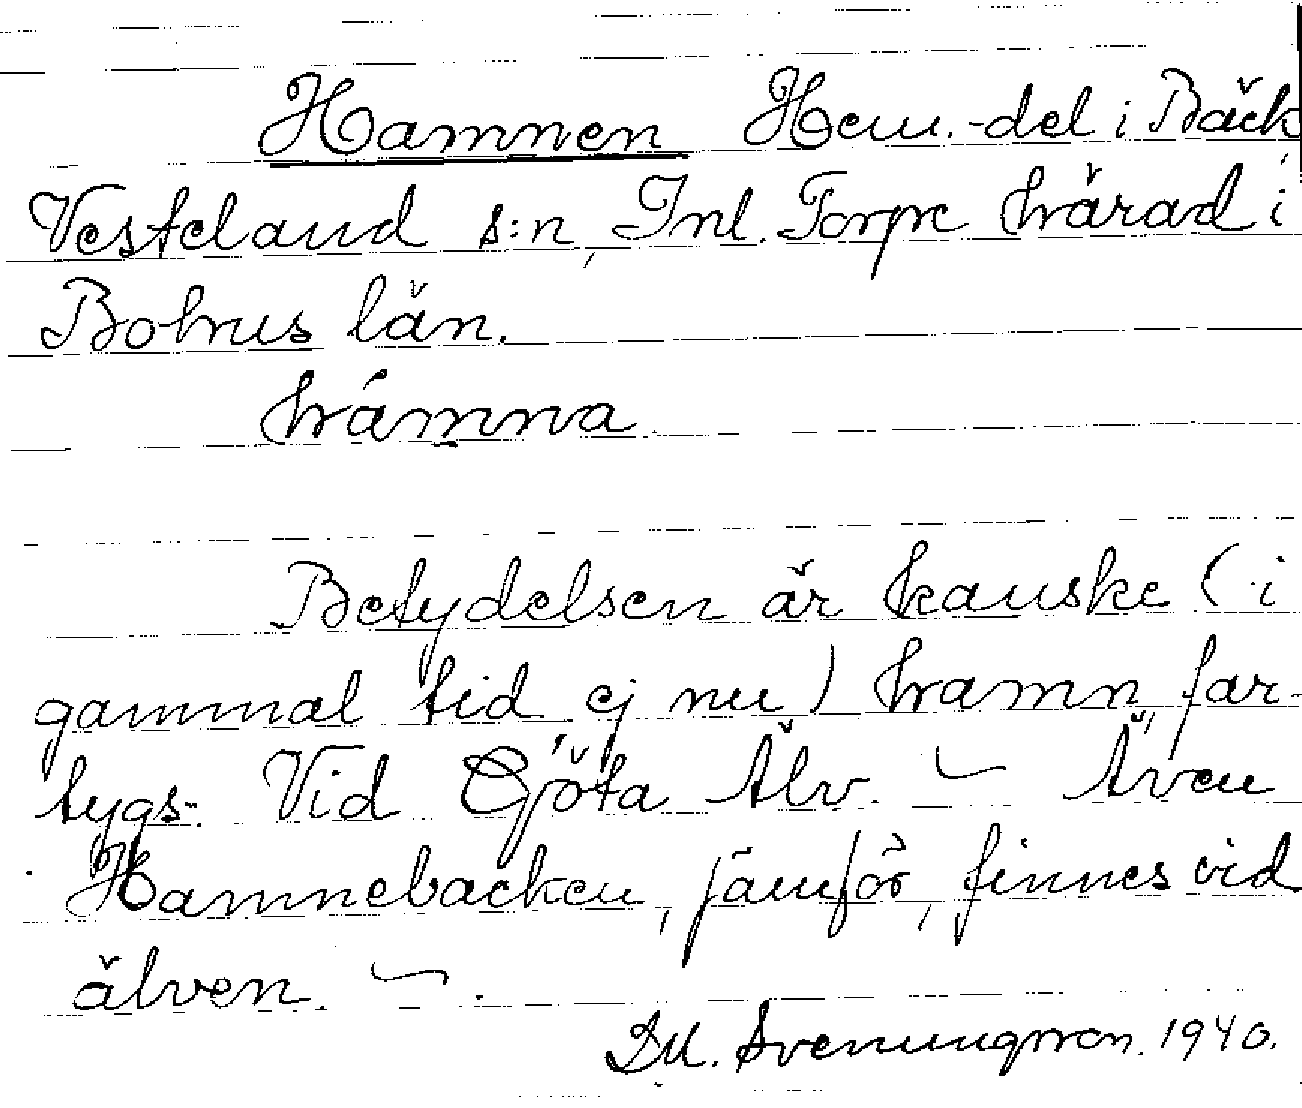 Hamnen Hem.-del i Bäck
Vesteland s:n, Inl. Torpe härad i
Bohus län.
hámna
Betydelsen är kanske (i
gammal tid, ej nu) hamn, far-
tygs-. Vid Göta Älv. – Även
Hamnebacken, jämför, finnes vid
älven. –.
Svenungsson. 1940.